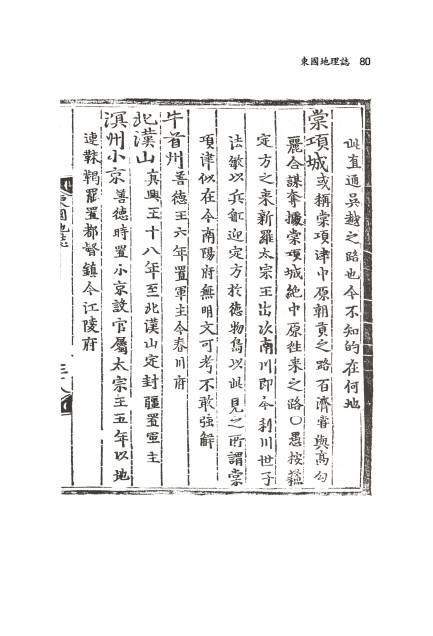 東國地理誌 80
此直通吳越之路也今不知的在何地
棠項城或稱棠項津中原朝貢之路百濟嘗與高勾
麗合謀奪據棠項城絶中原往來之路○愚按蘇
定方之來新羅太宗王出次南川即今利川世子
法敏以兵舡迎定方於德物島以此見之所謂棠
項津似在今南陽府無明文可考不敢强解
牛首州善德王六年置軍主今春川府
北漢山真興王十八年至北漢山定封疆置軍主
溟州小京善德時置小京設官屬太宗王五年以地
連靺鞨罷置都督鎮今江陵府